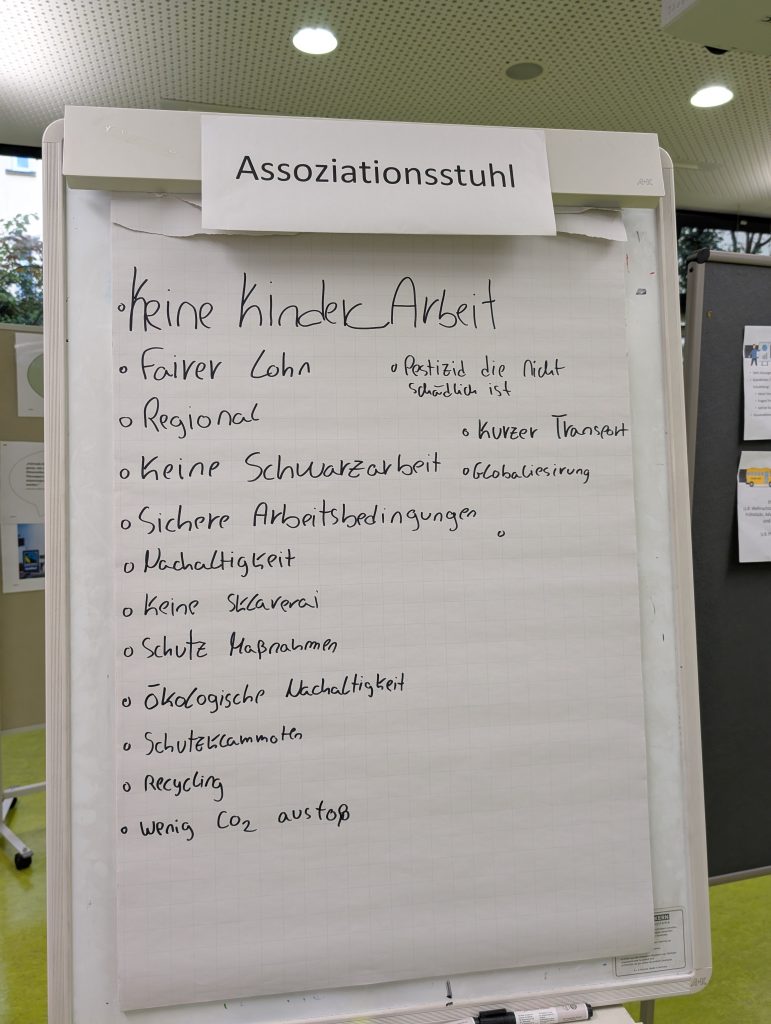 Assoziationsstuhl
Keine Kinder Arbeit
Fairer Lohn
Regional
Keine Schwarzarbeit
Sichere Arbeitsbedingungen
Nachaltigkeit
Keine Sklaverai
Schutz Maßnahmen
Ökologische Nachaltigkeit
Schutzklammoten
Recycling
wenig CO₂ austoß
Pestizid die nicht
schädlich ist
Kurzer Transport
Globaliesirung